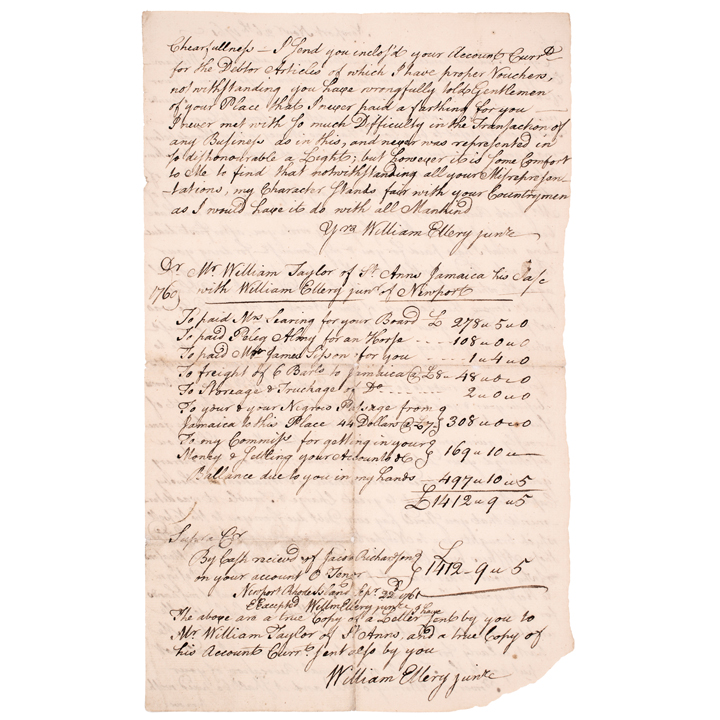 Chearfullness — I Send you inclos'd your Account Curr.t
for the Debtor Articles of which I have proper Vouchers,
notwithstanding you have wrongfully told Gentlemen
of your Place that I never paid a farthing for you —
I never met with so much Difficulty in the Transaction of
any Business as in this, and never was represented in
so dishonourable a Light; but however it is some Comfort
to Me to find that notwithstanding all your Misrepresen
-tations, my Character stands fair with your Countrymen
as I would have it do with all Mankind
Yrs William Ellery junr
Dr Mr William Taylor of St Anns Jamaica his
1760 with William Ellery junr of Newport
To paid Mrs Searing for your Board £ 278 " 5 " 0
To paid Peleg Almy for an Horse .... 108 " 0 " 0
To paid Mr James Sisson for you .... 1 " 4 " 0
To freight of 6 Barls to Jamaica @ £8 - 48 " 0 " 0
To Storeage & Truckage of Do ........ 2 " 0 " 0
To your & your Negros Passage from
Jamaica to this Place 44 Dollars @ £7 } 308 " 0 " 0
To my Commiss for getting in your
Money & Settling your Accounts &c } 169 " 10 " —
Ballance due to you in my hands — 497 " 10 " 5
£1412 " 9 " 5
Supra Cr
By Cash reciev'd of Jacob Richardson £
on your account O Tenor } 1412 - 9 " 5
Newport Rhode Island Sepr. 22d 1761
Excepted Willm Ellery junr
The above are a true Copy of a Letter I have sent by you to
Mr William Taylor of St Anns, and a true Copy of
his Account Currt sent also by you
William Ellery junr